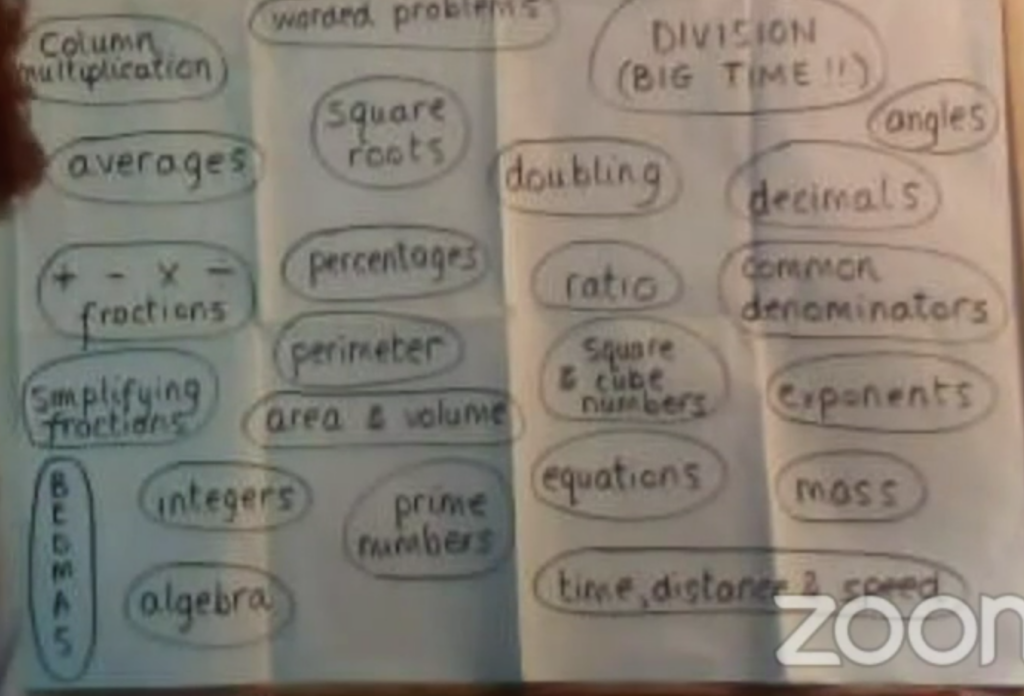 worded problems
Column
multiplication
DIVISION
(BIG TIME !!)
square
roots
angles
averages
doubling
decimals
+ - x -
fractions
percentages
ratio
common
denominators
perimeter
square
& cube
numbers
simplifying
fractions
area & volume
exponents
BEDMAS
integers
prime
numbers
equations
mass
algebra
time, distance & speed
zoom